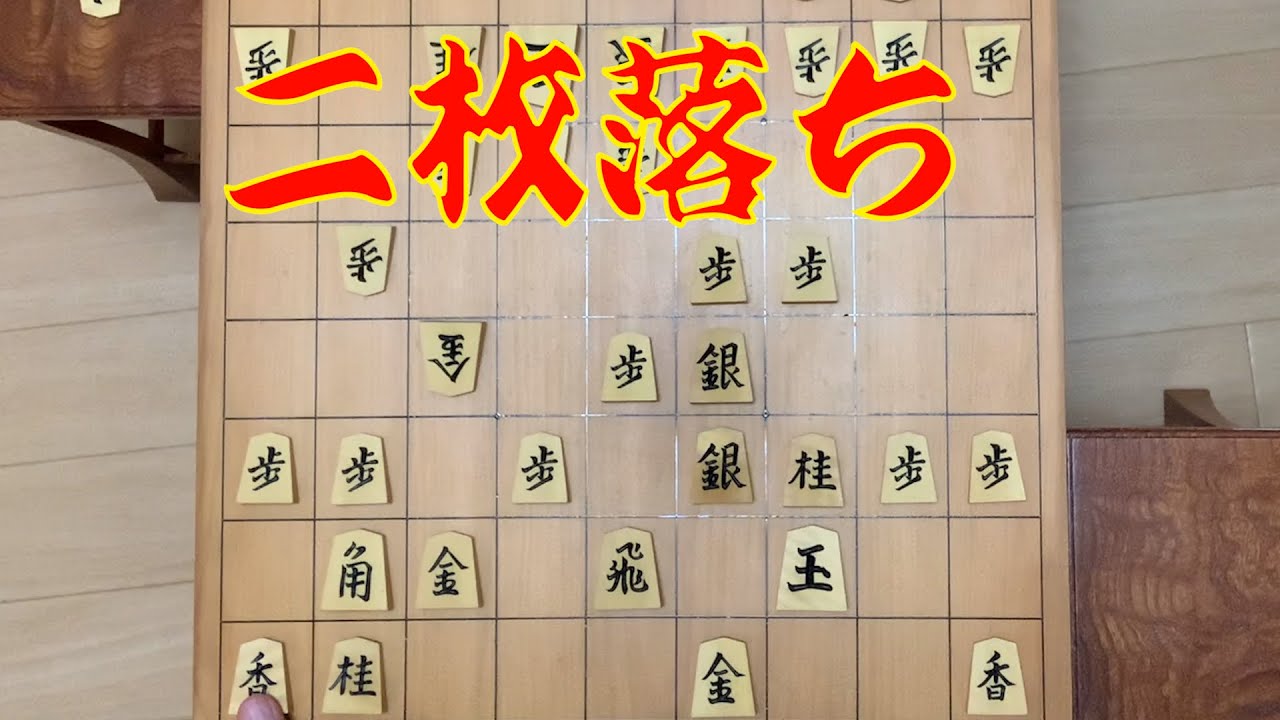 二枚落ち
歩 歩 歩 歩
歩 歩 歩
金 歩 銀
歩 歩 歩 銀 桂 歩 歩
角 金 飛 王
香 桂 金 香